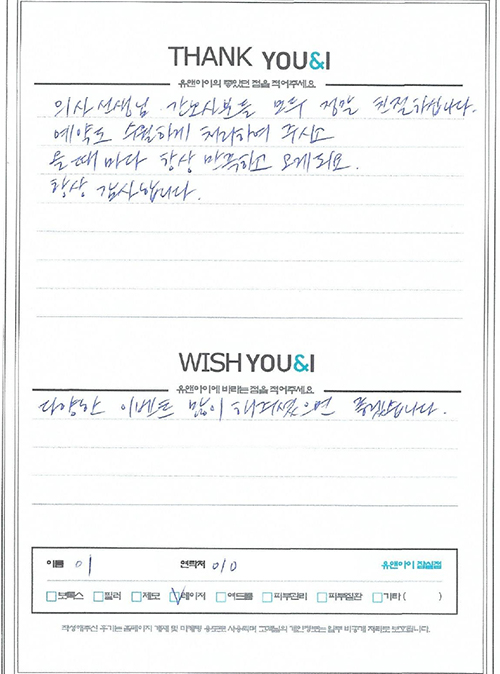 THANK YOU&I
유앤아이의 좋았던 점을 적어주세요
의사선생님 간호사분들 모두 정말 친절하십니다.
예약도 수월하게 처리하여 주시고
올때 마다 항상 만족하고 오게 되요.
항상 감사합니다.
WISH YOU&I
유앤아이에 바라는 점을 적어주세요
다양한 이벤트 많이 해주셨으면 좋겠습니다.
이름 이 연락처 010 유앤아이 잠실점
보톡스 필러 제모 레이저 여드름 피부관리 피부질환 기타 ( )
작성해주신 후기는 홈페이지 게재 및 마케팅 용도로 사용되며 고객님의 개인정보는 일부 비공개 처리로 보호됩니다.